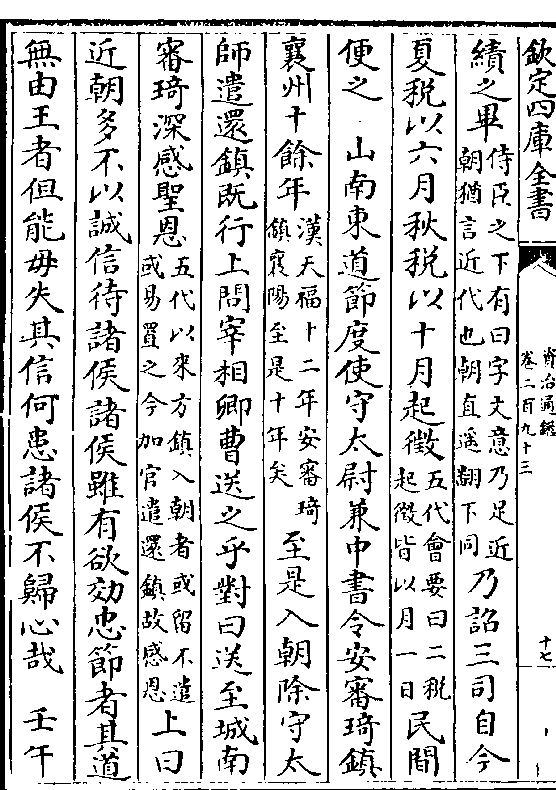 欽定四庫全書
資治通鑑
卷二百九十三
十七
績之畢侍臣之下有曰字文意乃足近
朝猶言近代也朝直遥翻下同乃詔三司自今
夏税以六月秋税以十月起徵五代會要曰二税
起徵皆以月一日民間
便之 山南東道節度使守太尉兼中書令安審琦鎮
襄州十餘年漢天福十二年安審琦
鎮襄陽至是十年矣至是入朝除守太
師遣還鎮既行上問宰相卿曹送之乎對曰送至城南
審琦深感聖恩五代以來方鎮入朝者或留不遣
或易置之今加官遣還鎮故感恩上曰
近朝多不以誠信待諸侯諸侯雖有欲効忠節者其道
無由王者但能毋失其信何患諸侯不歸心哉 壬午